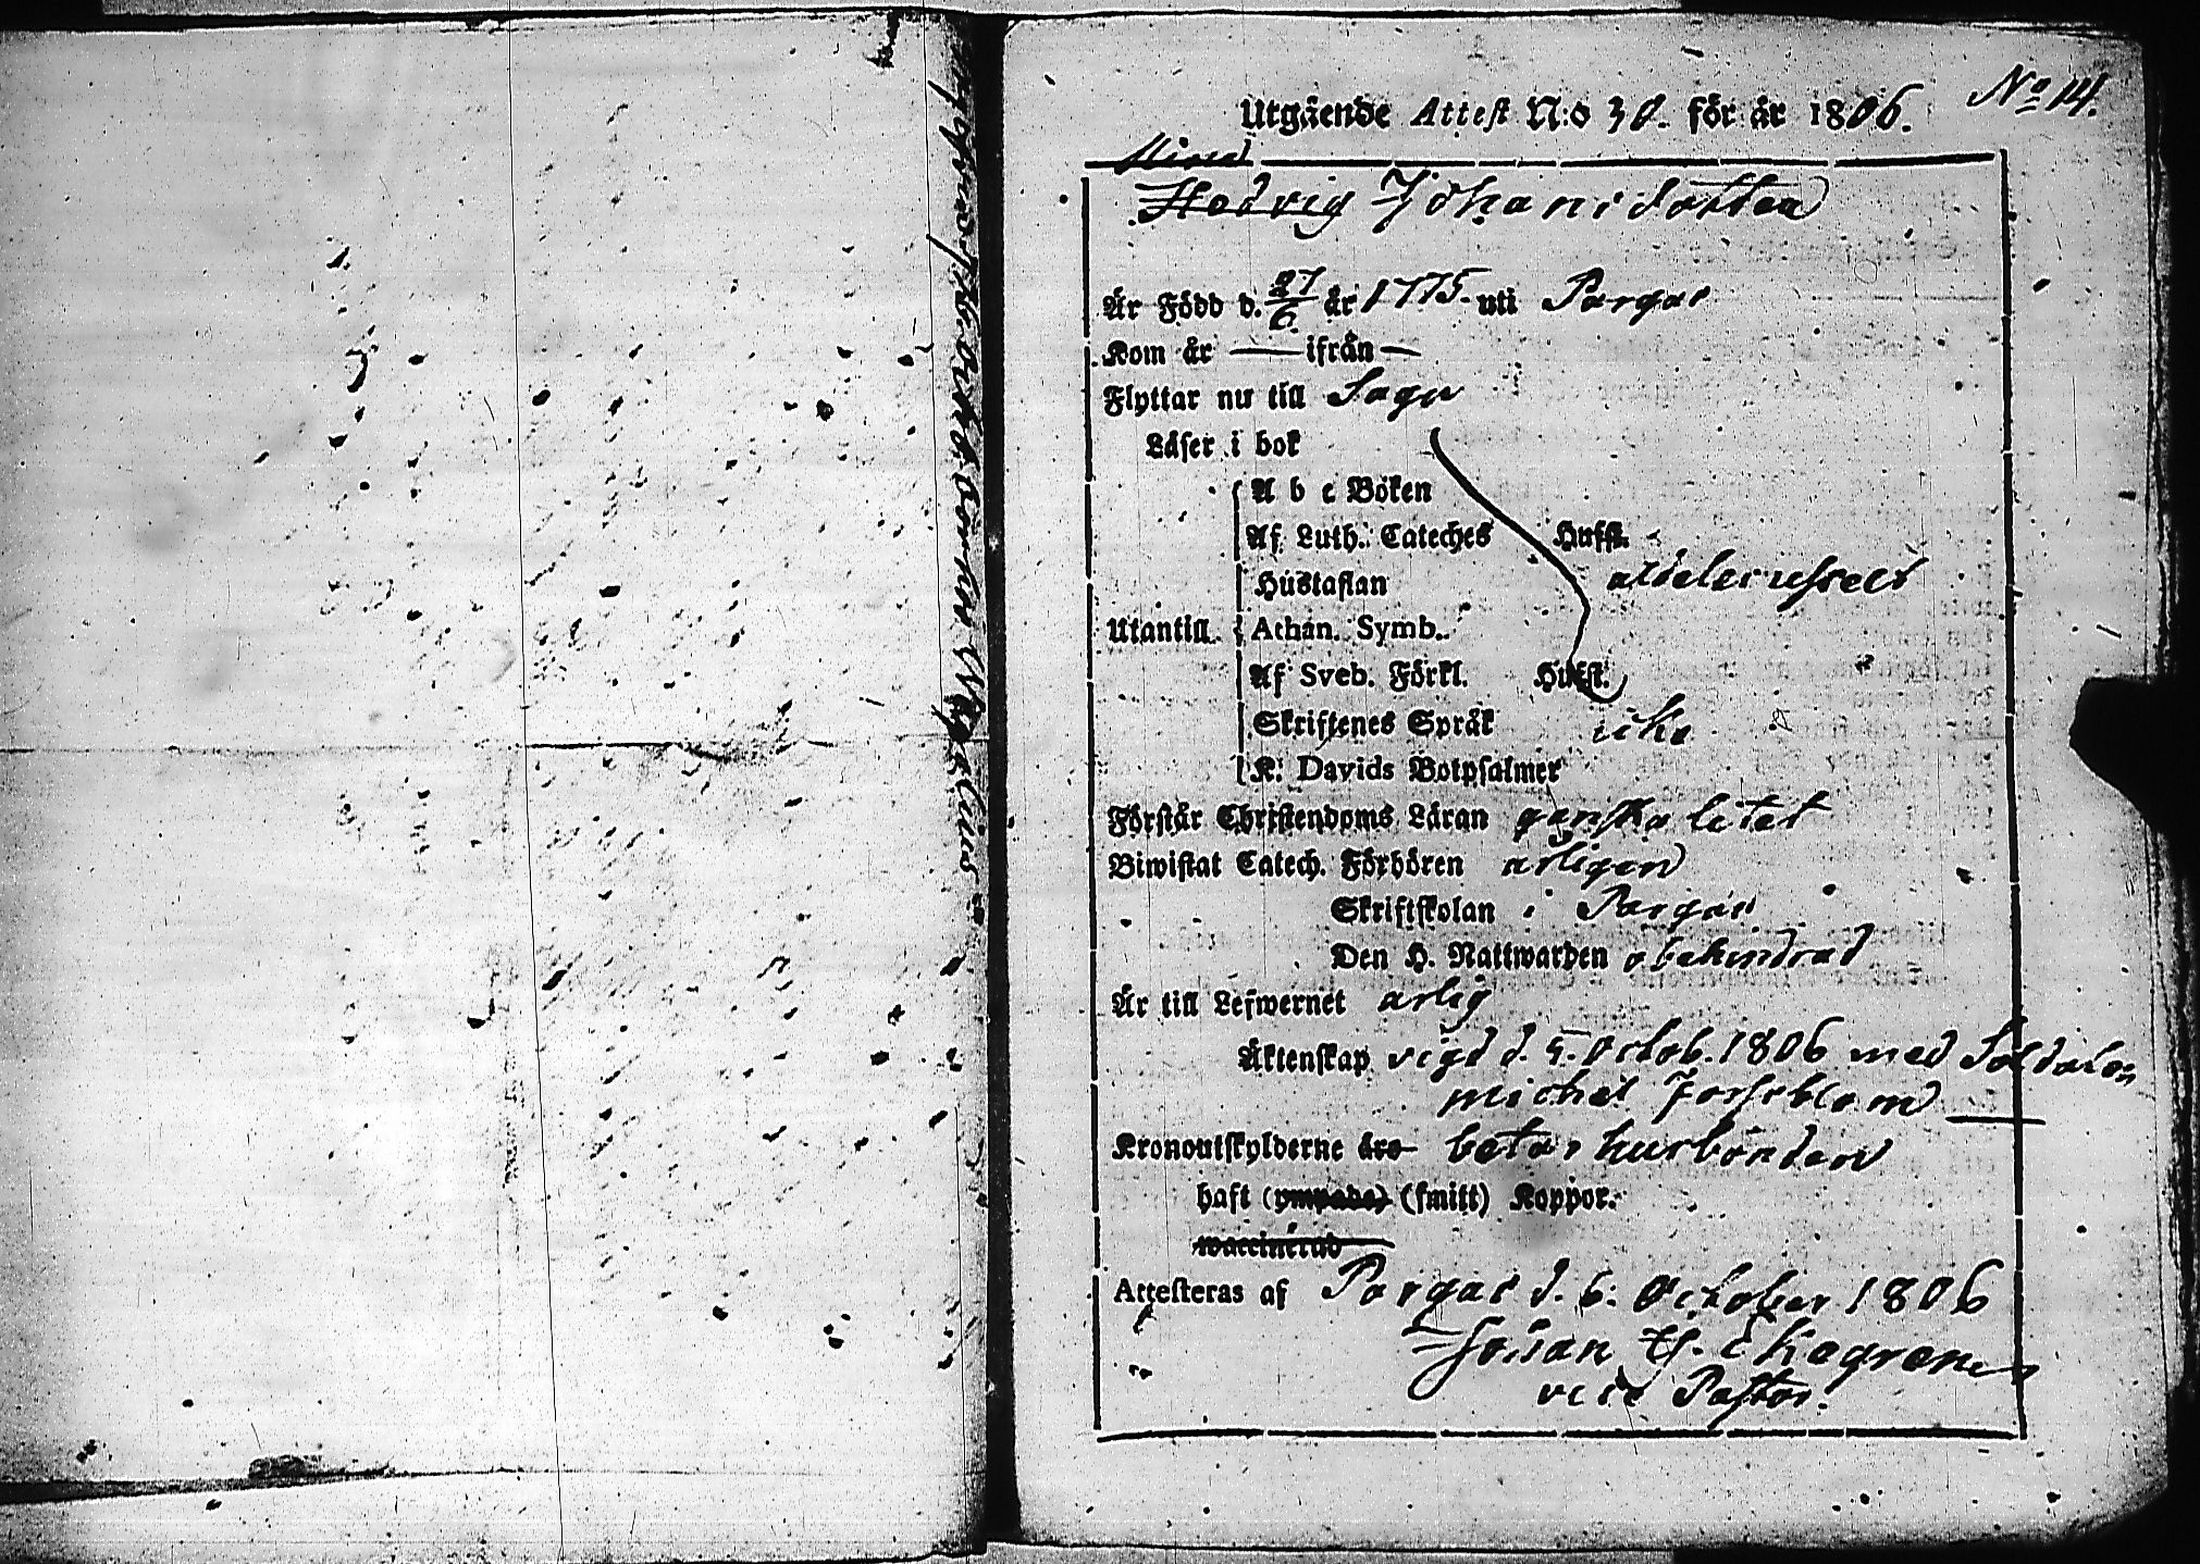 No 14.
Utgående Attest N:o 30. för år 1806.
Hedvig Johansdotter
Är Född d. 27/6 år 1775. uti Pargas
Kom år — ifrån —
Flyttar nu till Sagu
Läser i bok
A b c Boken
Af Luth. Cateches Hufst.
alldeles uselt
Hustaflan
Utantill Athan. Symb.
Af Sveb. Förkl. Hufst.
Skriftenes Språk icke
K. Davids Botpsalmer
Förstår Christendoms Läran ganska litet
Biwistat Catech. Förhören årligen
Skriftskolan i Pargas
Den H. Nattwarden obehindrad
Är till Lefwernet ärlig
Äktenskap vigd d. 5. Octob. 1806 med Soldaten
Michel Forsblom
Kronoutskylderne äro betar husbonden
haft (ympade) (smitt) Koppor.
waccinerad
Attesteras af Pargas d. 6. October 1806
Johan
vice Pastor.